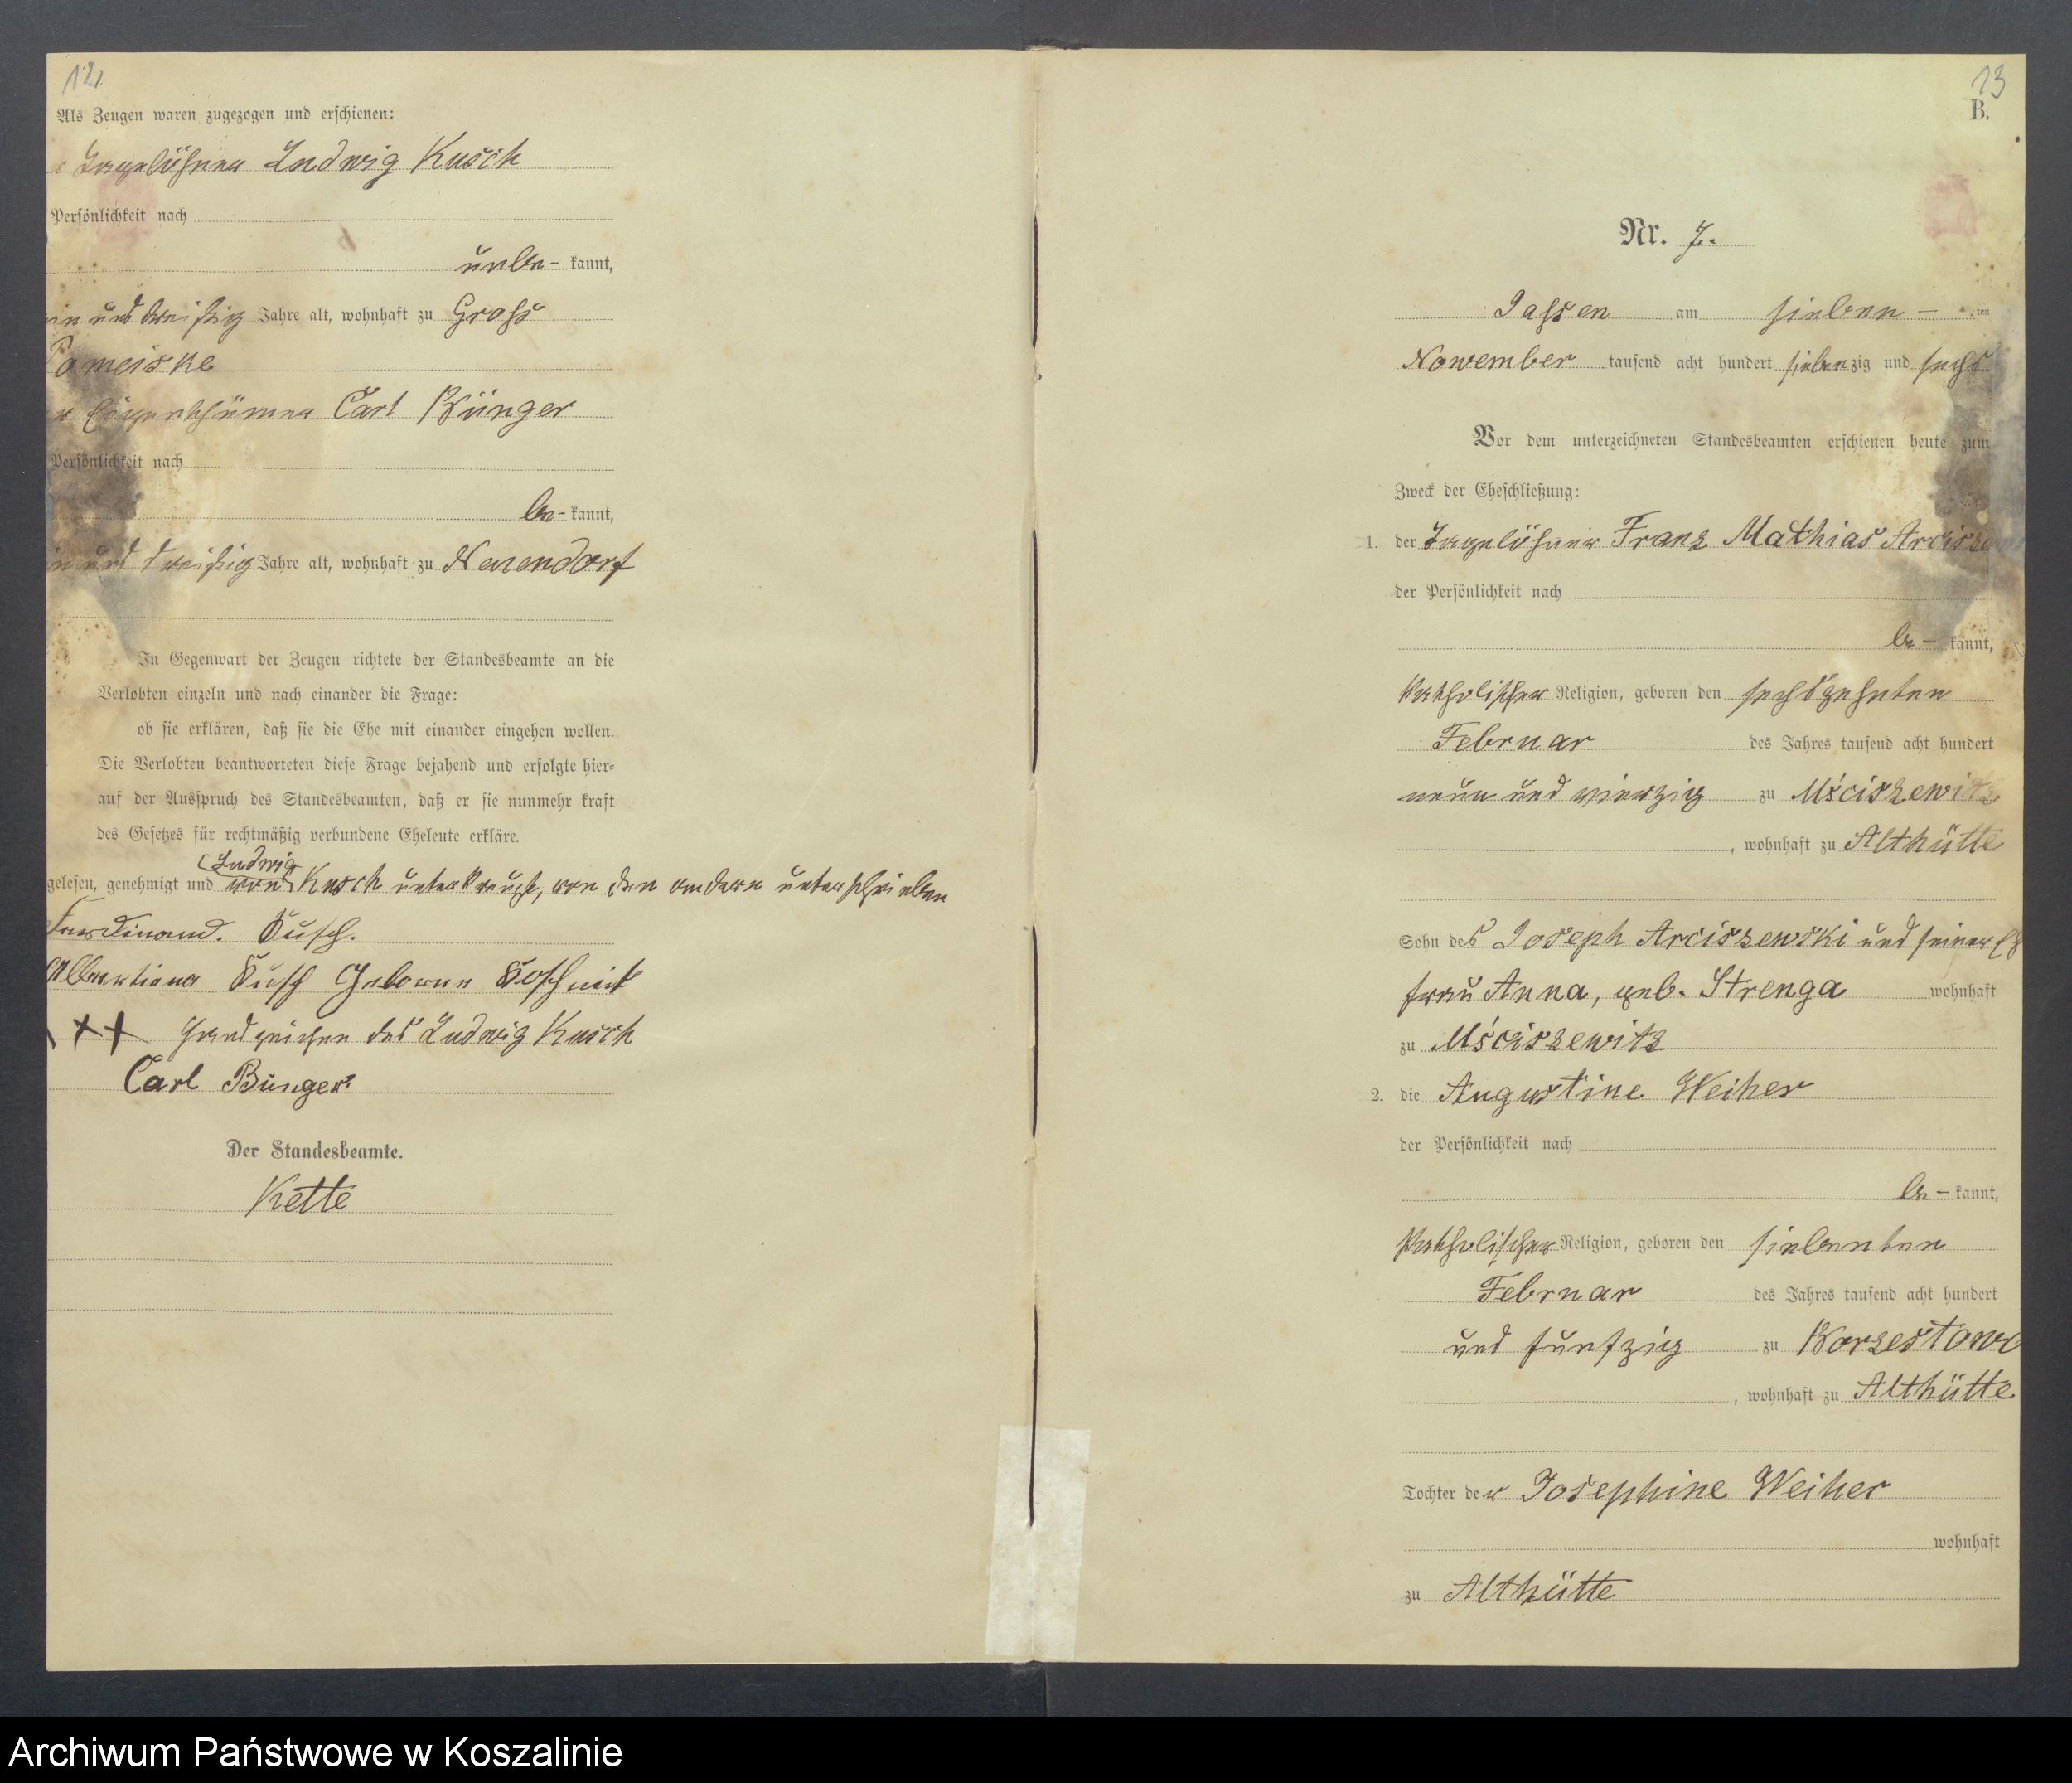 12.
Als Zeugen waren zugezogen und erschienen:
Tagelöhner Ludwig Kusch
Persönlichkeit nach
unbe- kannt,
ein und dreißig Jahre alt, wohnhaft zu Gross
Pomeiske
Eigenthümer Carl Bünger
Persönlichkeit nach
be- kannt,
ein und dreißig Jahre alt, wohnhaft zu Neuendorf
In Gegenwart der Zeugen richtete der Standesbeamte an die
Verlobten einzeln und nach einander die Frage:
ob sie erklären, daß sie die Ehe mit einander eingehen wollen.
Die Verlobten beantworteten diese Frage bejahend und erfolgte hier=
auf der Ausspruch des Standesbeamten, daß er sie nunmehr kraft
des Gesetzes für rechtmäßig verbundene Eheleute erkläre.
Ludwig
gelesen, genehmigt und von Kusch unterkreuzt, von den andern unterschrieben
Ferdinand. Kusch.
Albertiene Kusch Geborne Koschnick
+++ Handzeichen des Ludwig Kusch
Carl Bünger.
Der Standesbeamte.
Kette
13
B.
Nr. 7.
Jassen am sieben - ten
November tausend acht hundert siebenzig und sechs
Vor dem unterzeichneten Standesbeamten erschienen heute zum
Zweck der Eheschließung:
1. der Tagelöhner Franz Mathias Arciszew
der Persönlichkeit nach
be - kannt,
katholischer Religion, geboren den sechszehnten
Februar des Jahres tausend acht hundert
neun und vierzig zu Mściszewitz
, wohnhaft zu Althütte
Sohn des Joseph Arciszewski und seiner Eh
frau Anna, geb. Strenga wohnhaft
zu Mściszewitz
2. die Augustine Weiher
der Persönlichkeit nach
be - kannt,
katholischer Religion, geboren den siebenten
Februar des Jahres tausend acht hundert
und fünfzig zu Borzestowo
, wohnhaft zu Althütte
Tochter der Josephine Weiher
wohnhaft
zu Althütte
Archiwum Państwowe w Koszalinie